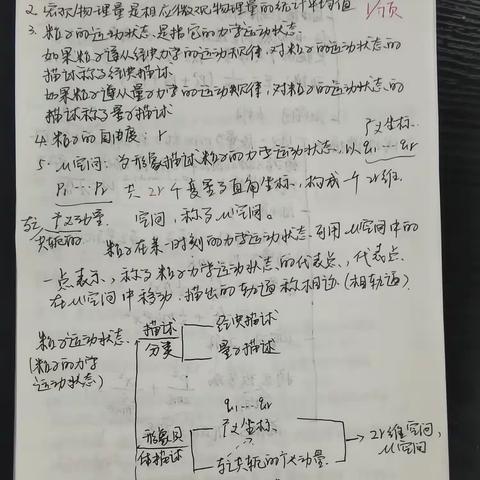 2. 宏观物理量是相应微观物理量的统计平均值
3. 粒子的运动状态是指它的力学运动状态.
如果粒子遵从经典力学的运动规律, 对粒子的运动状态的
描述称为经典描述
如果粒子遵从量子力学的运动规律, 对粒子的运动状态的
描述称为量子描述
4. 粒子的自由度: r
广义坐标.
5. μ空间: 为形象描述粒子的力学运动状态, 以 q₁…qᵣ
P₁…Pᵣ 共 2r 个变量为直角坐标, 构成一个 2r 维
与之共轭的广义动量. 空间, 称为μ空间。
粒子在某一时刻的力学运动状态可用μ空间中的
一点表示, 称为粒子力学运动状态的代表点, 代表点
在μ空间中移动, 描出的轨道称相迹 (相轨道).
粒子运动状态.
(粒子的力学
运动状态)
描述
分类
经典描述
量子描述
形象具
体描述
q₁…qᵣ
广义坐标.
与之共轭的广义动量.
2r维空间,
μ空间